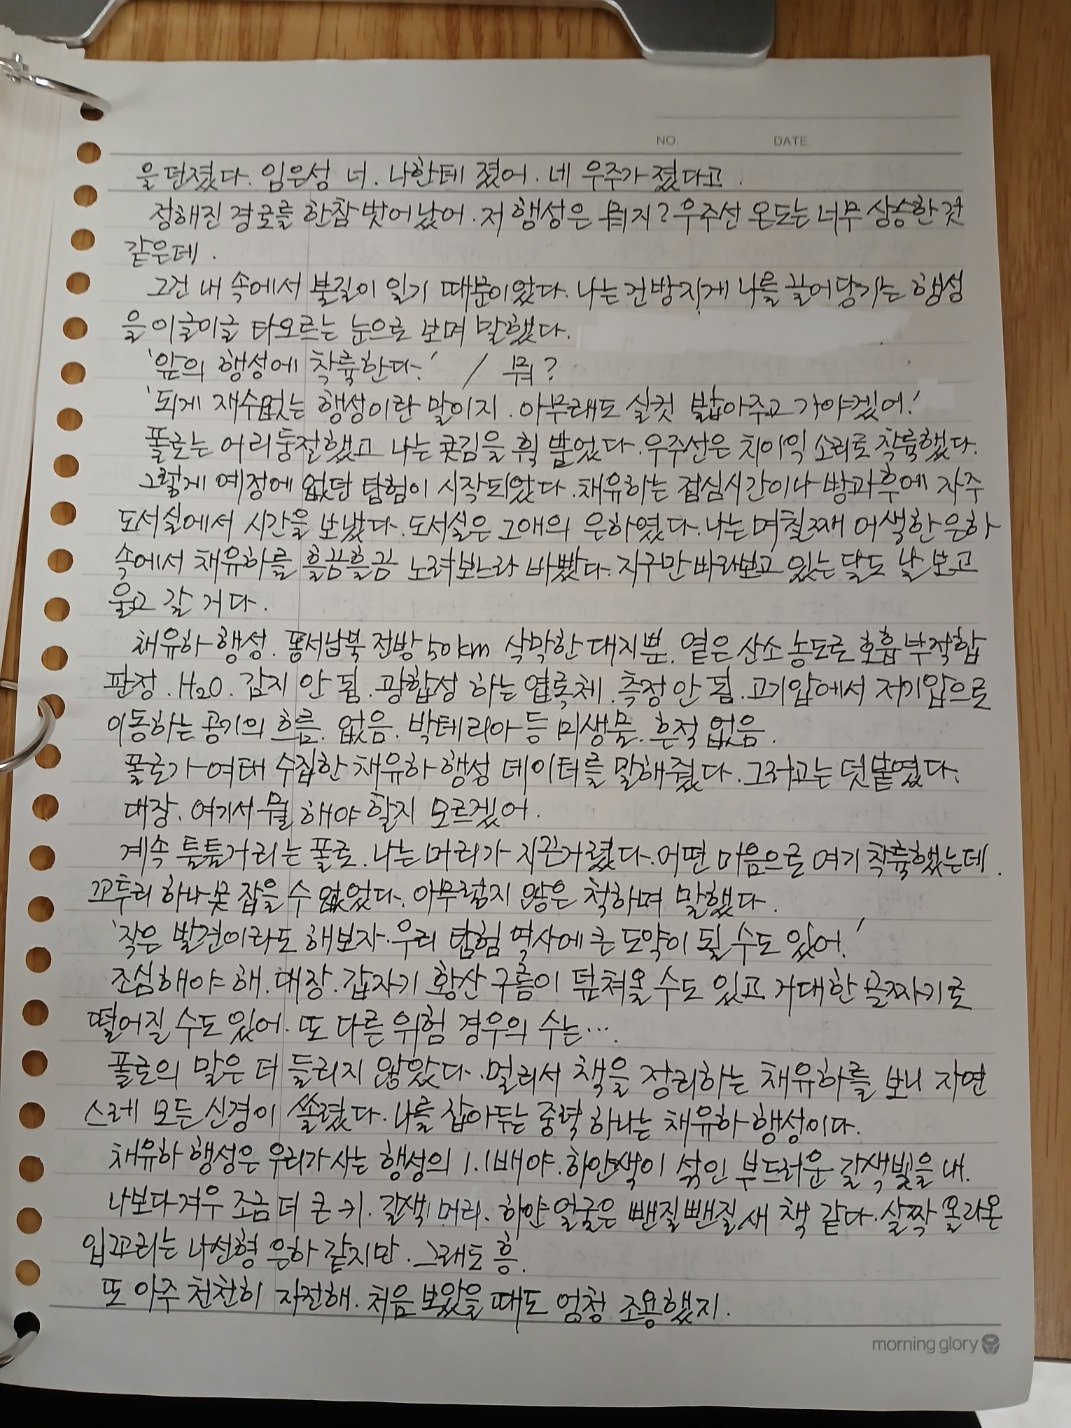 NO. DATE.
을 던졌다. 임은성 너. 나한테 졌어. 네 우주가 졌다고.
정해진 경로를 한참 벗어났어. 저 행성은 뭐지? 우주선 온도는 너무 상승한 것
같은데.
그건 내 속에서 불길이 일기 때문이었다. 나는 건방지게 나를 끌어당기는 행성
을 이글이글 타오르는 눈으로 보며 말했다.
'앞의 행성에 착륙한다.' / 뭐?
'되게 재수없는 행성이란 말이지. 아무래도 실컷 밟아주고 가야겠어!'
폴로는 어리둥절했고 나는 콧김을 훅 뿜었다. 우주선은 치이익 소리로 착륙했다.
그렇게 예정에 없던 탐험이 시작되었다. 채유하는 점심시간이나 방과후에 자주
도서실에서 시간을 보냈다. 도서실은 그애의 은하였다. 나는 며칠째 어색한 은하
속에서 채유하를 흘끔흘끔 노려보느라 바빴다. 지구만 바라보고 있는 달도 날 보고
웃고 갈 거다.
채유하 행성. 동서남북 전방 50km 삭막한 대지뿐. 옅은 산소 농도로 호흡 부적합
판정. H2O. 감지 안 됨. 광합성 하는 엽록체. 측정 안 됨. 고기압에서 저기압으로
이동하는 공기의 흐름. 없음. 박테리아 등 미생물. 흔적 없음.
폴로가 여태 수집한 채유하 행성 데이터를 말해줬다. 그러고는 덧붙였다.
대장. 여기서 뭘 해야 할지 모르겠어.
계속 틀틀거리는 폴로. 나는 머리가 지끈거렸다. 어떤 마음으로 여기 착륙했는데.
꼬투리 하나 못 잡을 수 없었다. 아무렇지 않은 척하며 말했다.
'작은 발견이라도 해보자. 우리 탐험 역사에 큰 도약이 될 수도 있어.'
조심해야 해. 대장. 갑자기 황산 구름이 덮쳐올 수도 있고 거대한 골짜기로
떨어질 수도 있어. 또 다른 위험 경우의 수는…
폴로의 말은 더 들리지 않았다. 멀리서 책을 정리하는 채유하를 보니 자연
스레 모든 신경이 쏠렸다. 나를 잡아두는 중력 하나는 채유하 행성이다.
채유하 행성은 우리가 사는 행성의 1.1배야. 하얀색이 섞인 부드러운 갈색빛을 내.
나보다 겨우 조금 더 큰 키. 갈색 머리. 하얀 얼굴은 뺀질뺀질 새 책 같다. 살짝 올라온
입꼬리는 나선형 은하 같지만. 그래도 흥.
또 아주 천천히 자전해. 처음 보았을 때도 엄청 조용했지.
morning glory